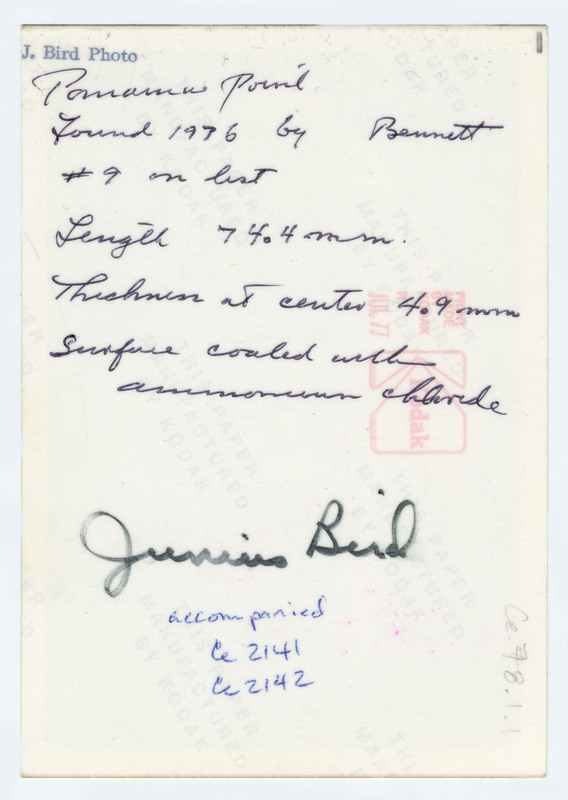 J. Bird Photo
Panama Point
Found 1976 by Bennett
#9 on list
Length 74.4 mm.
Thickness at center 4.9 mm
Surface coated with
ammonium chloride
Junius Bird
accompanied
Ce 2141
Ce 2142
Ce 78.1.1
JUL 77
Kodak
THIS PAPER
MANUFACTURED
BY KODAK